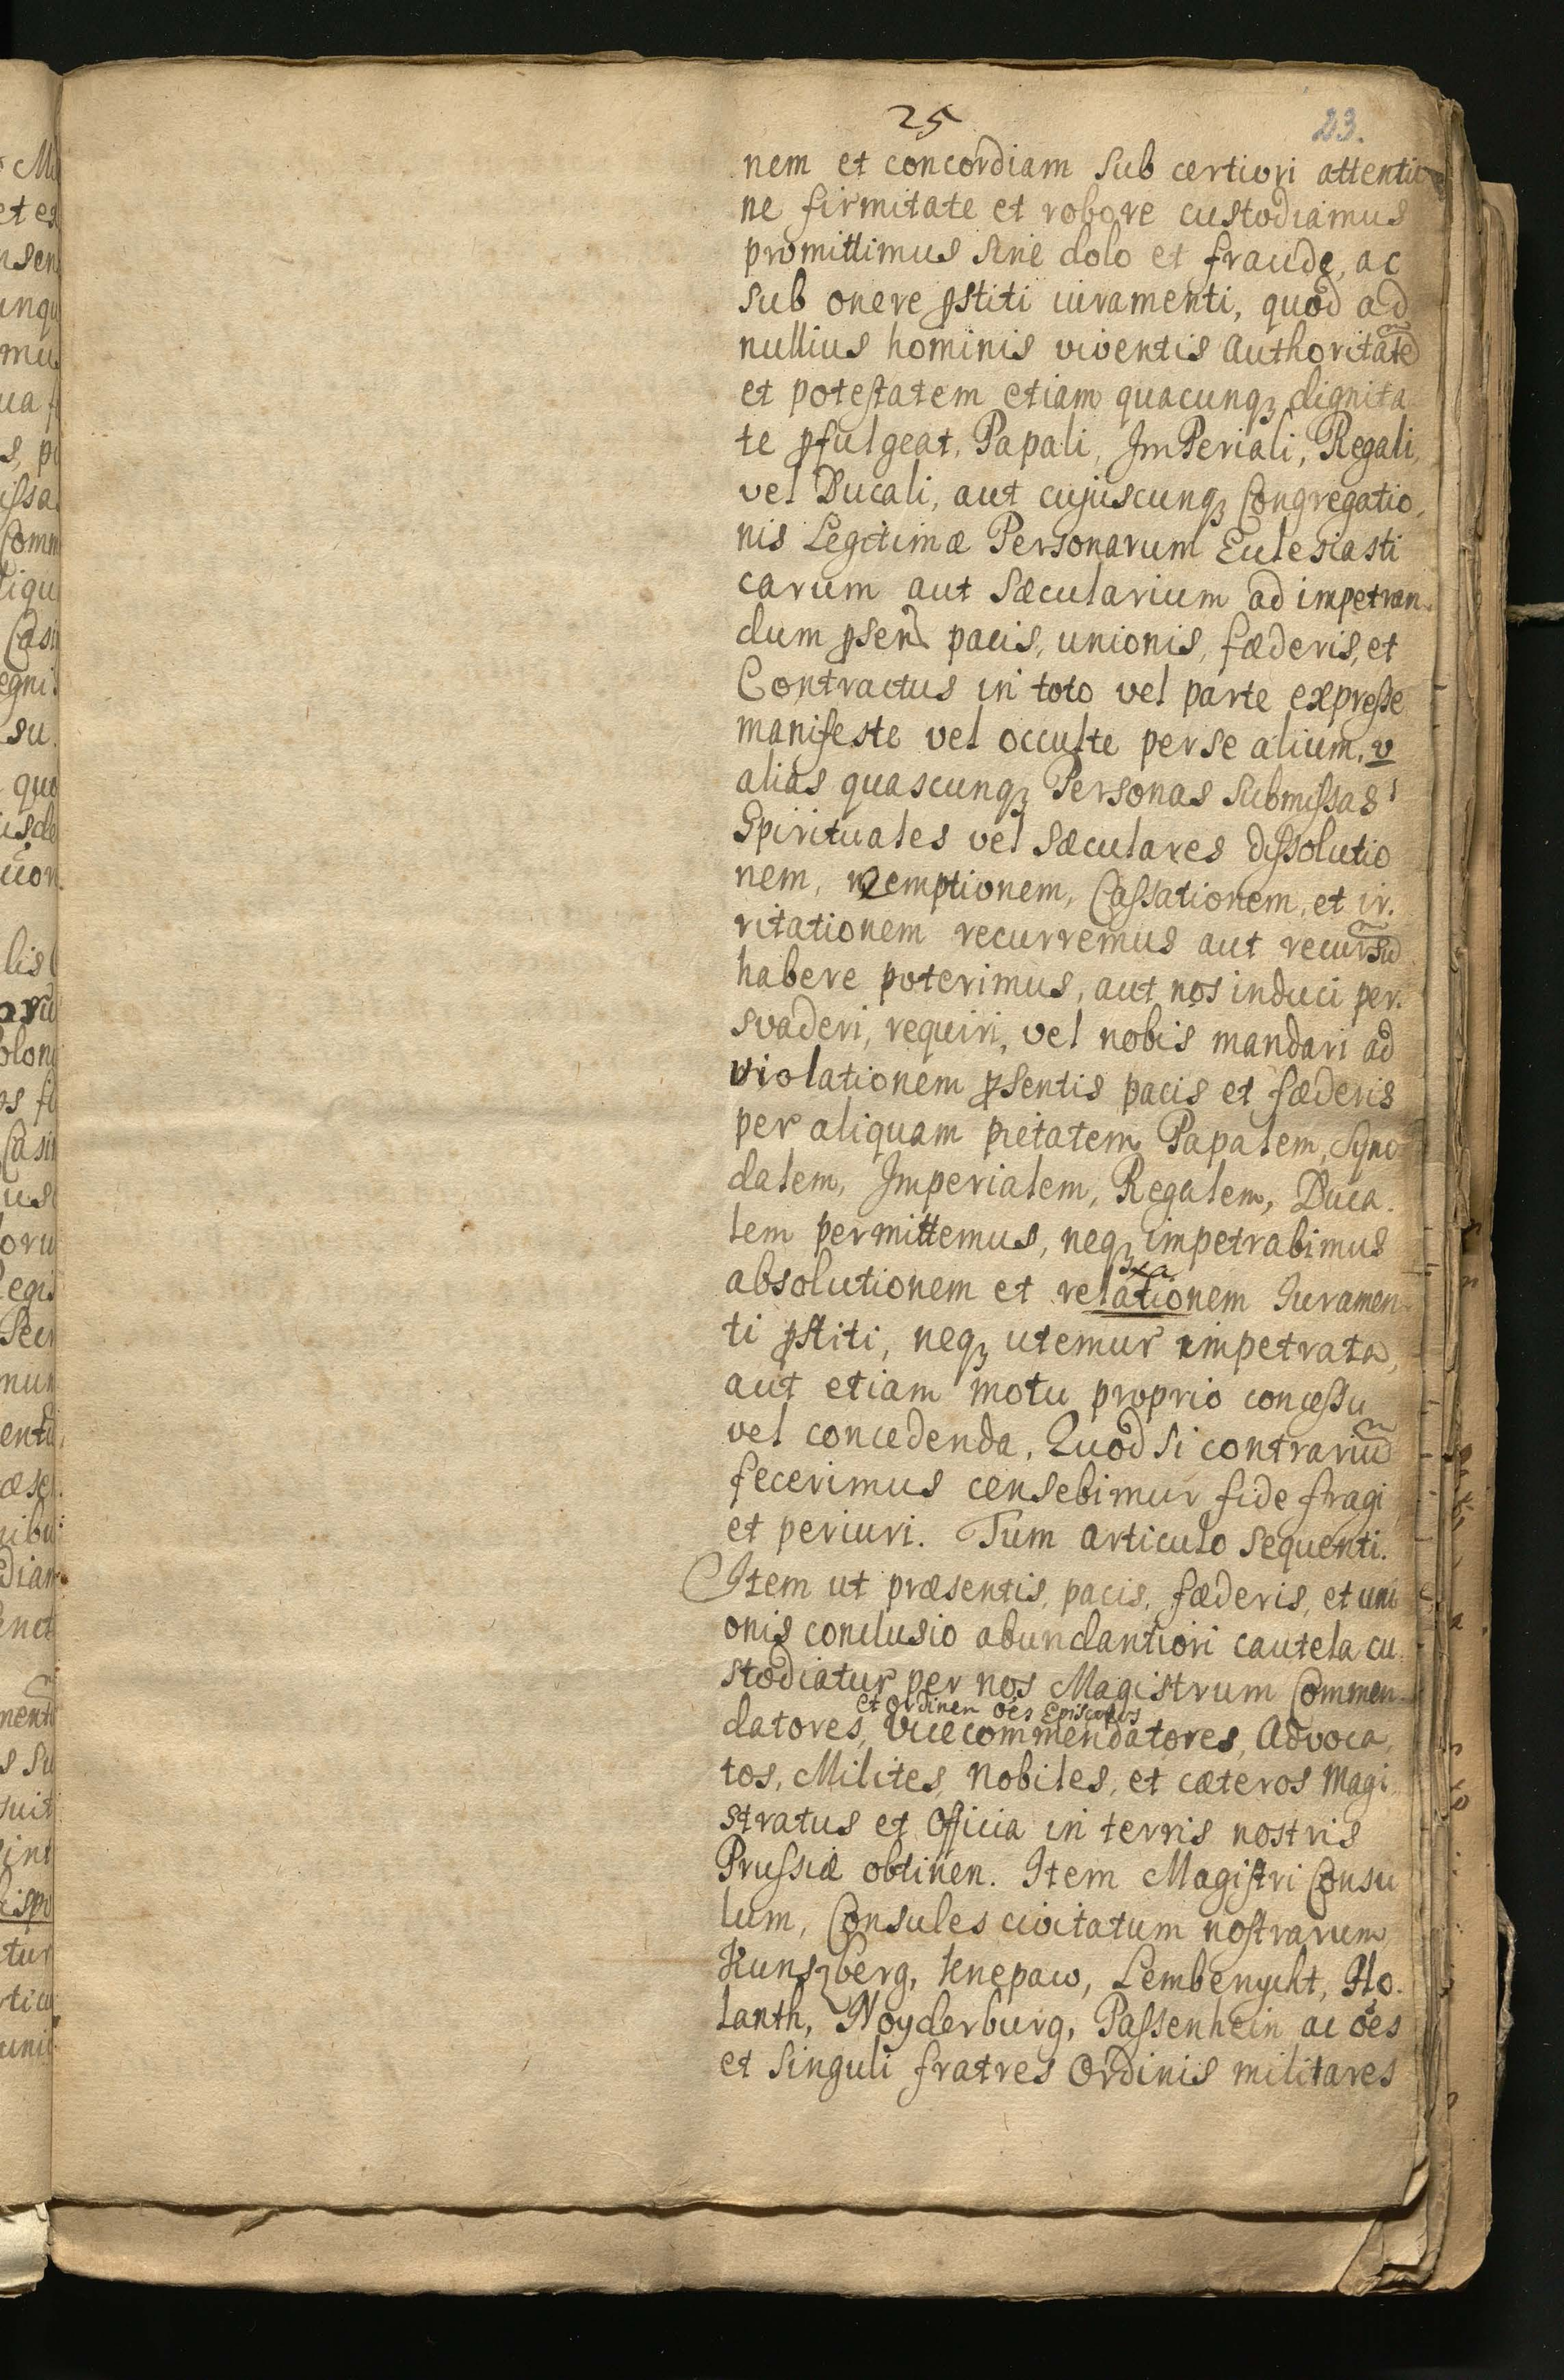 25
23.
nem et concordiam sub certiori attentio
ne firmitate et robore custodiamus
promittimus sine dolo et fraude, ac
sub onere p̱stiti iuramenti, quod ad
nullius hominis viventis Authoritate͂
et potestatem etiam quacunqꝫ dignita
te p̱fulgeat, Papali, ImPeriali, Regali,
vel Ducali, aut cujuscunqꝫ Congregatio,
nis Legitimæ Personarum Eulesiasti
carum aut Sæcularium ad impetran.
dum p̱sen pacis, unionis, fæderis, et
Contractus in toto vel parte expresse
manifeste vel occulte per se alium, v
alias quascunqꝫ Personas submissas
Spirituales vel Sæculares dissolutio
nem, emptionem, Cassationem, et ir.
ritationem recurremus aut recursu͂
habere poterimus, aut nos induci per.
svaderi, requiri, vel nobis mandari ad
violationem p̱sentis pacis et fæderis
per aliquam pietatem Papalem, Syno
dalem, Imperialem, Regalem, Duca.
lem permittemus, neqꝫ impetrabimus
xa
absolutionem et relationem Iuramen
ti p̱stiti, neqꝫ utemur impetrata,
aut etiam motu proprio concessu
vel concedenda, Quod si contrariu͂
fecerimus censebimur fide fragi
et periuri. Tum articulo sequenti.
Item ut præsentis, pacis, fæderis, et uni
onis conclusio abundantiori cautela cu
stodiatur per nos Magistrum Commen
et Ordinem oe͂s Episcopos
datores, vicecommendatores, Advoca,
tos, Milites, Nobiles, et cæteros Magi
stratus et Officia in terris nostris
Prussiæ obtinen. Item Magistri Consu
lum, Consules civitatum nostrarum
Kunsꝫberg, Knepaw, Lembenycht, Ho.
lanth, Noyderburg, Passenhein ac oe͂s
et singuli fratres Ordinis militares